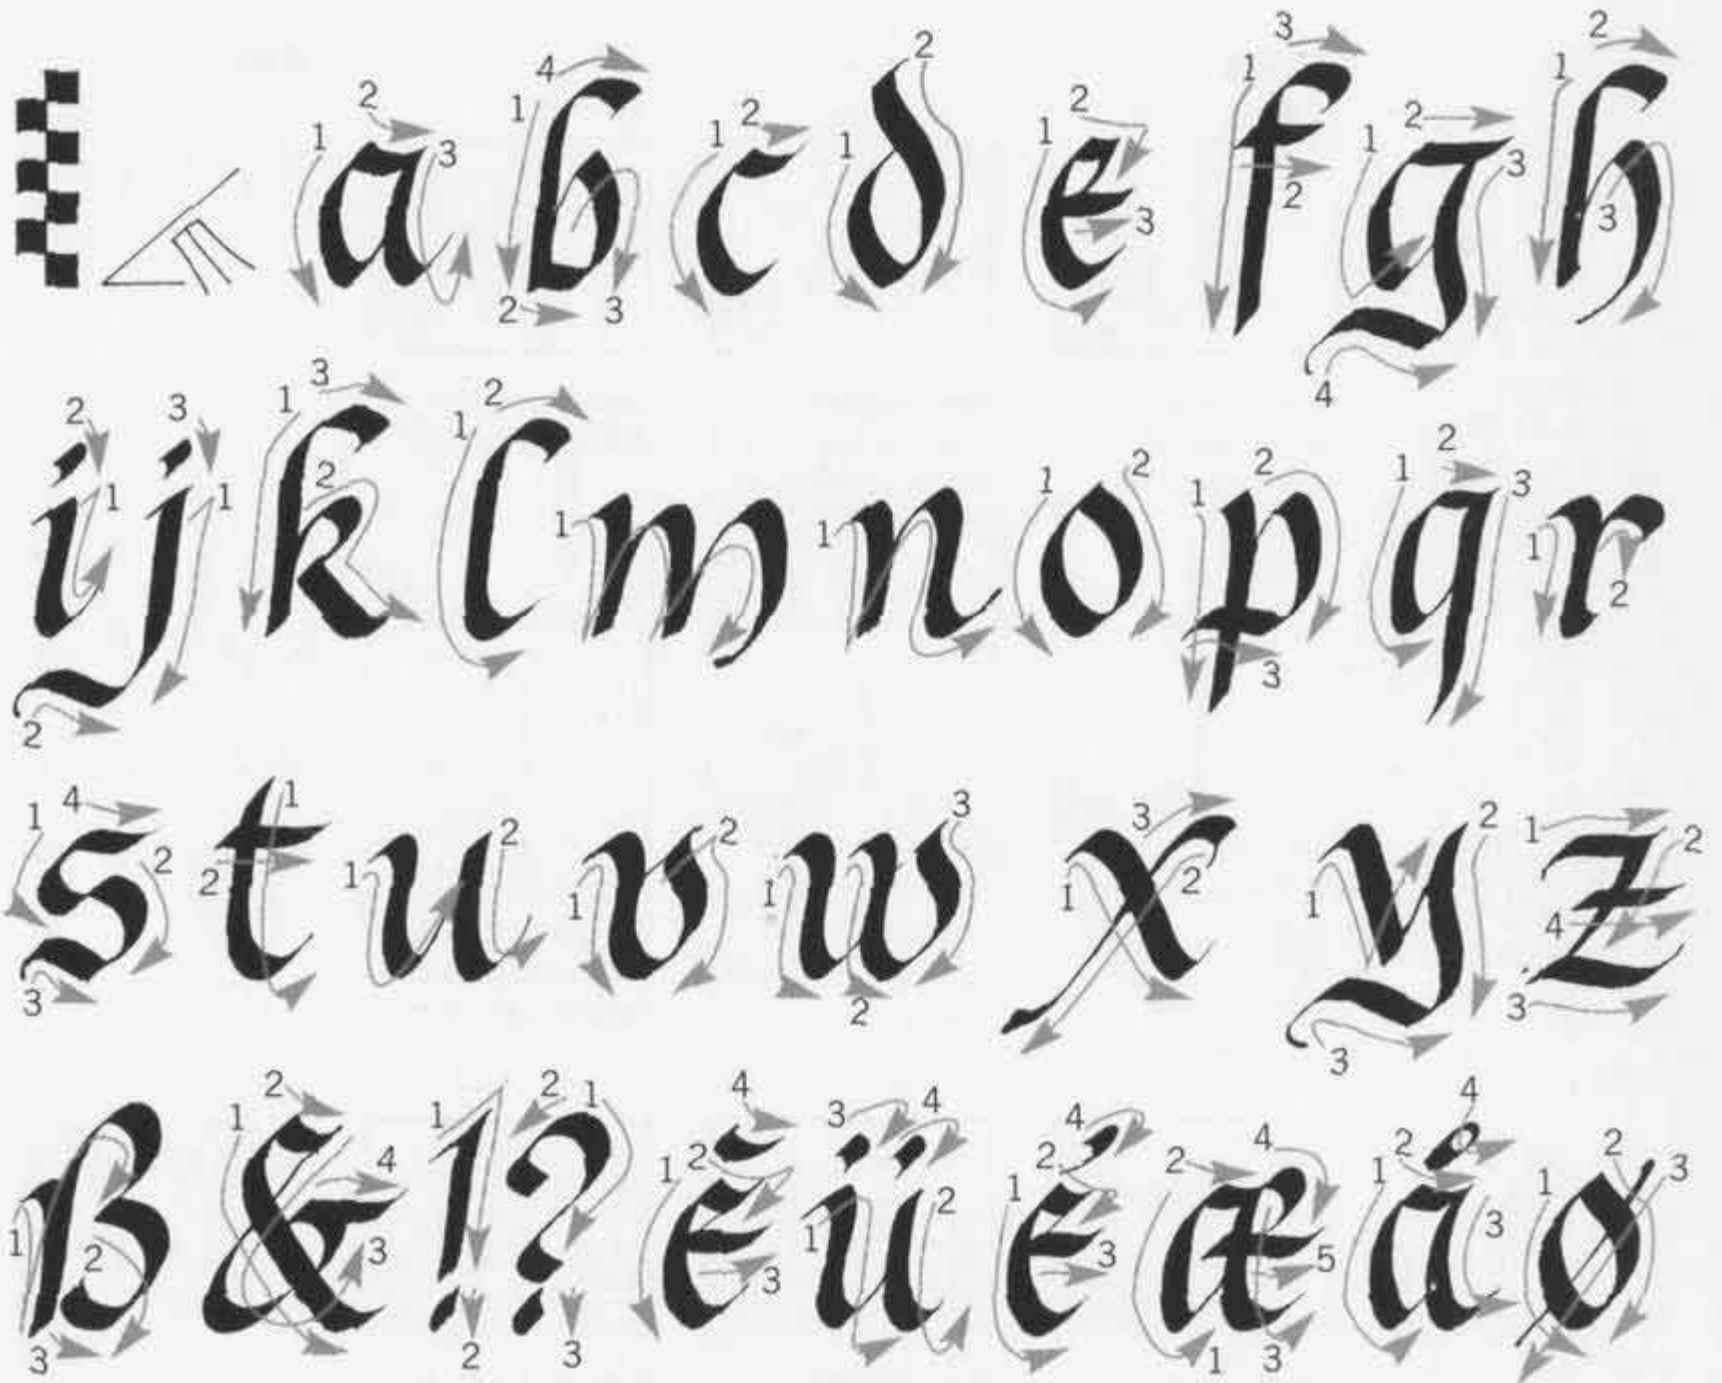 a b c d e f g h
i j k l m n o p q r
s t u v w x y z
ß & ! ? ē ü é æ á ø